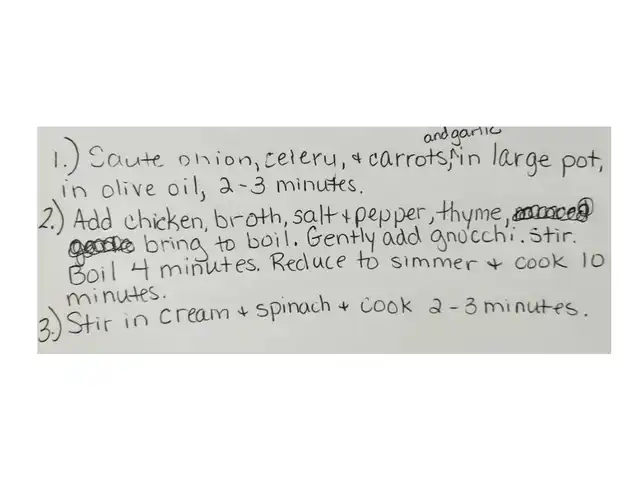 and garlic
1.) Saute onion, celery, & carrots, in large pot,
in olive oil, 2-3 minutes.
2.) Add chicken, broth, salt & pepper, thyme,
bring to boil. Gently add gnocchi. Stir.
Boil 4 minutes. Reduce to simmer & cook 10
minutes.
3.) Stir in cream & spinach & cook 2-3 minutes.